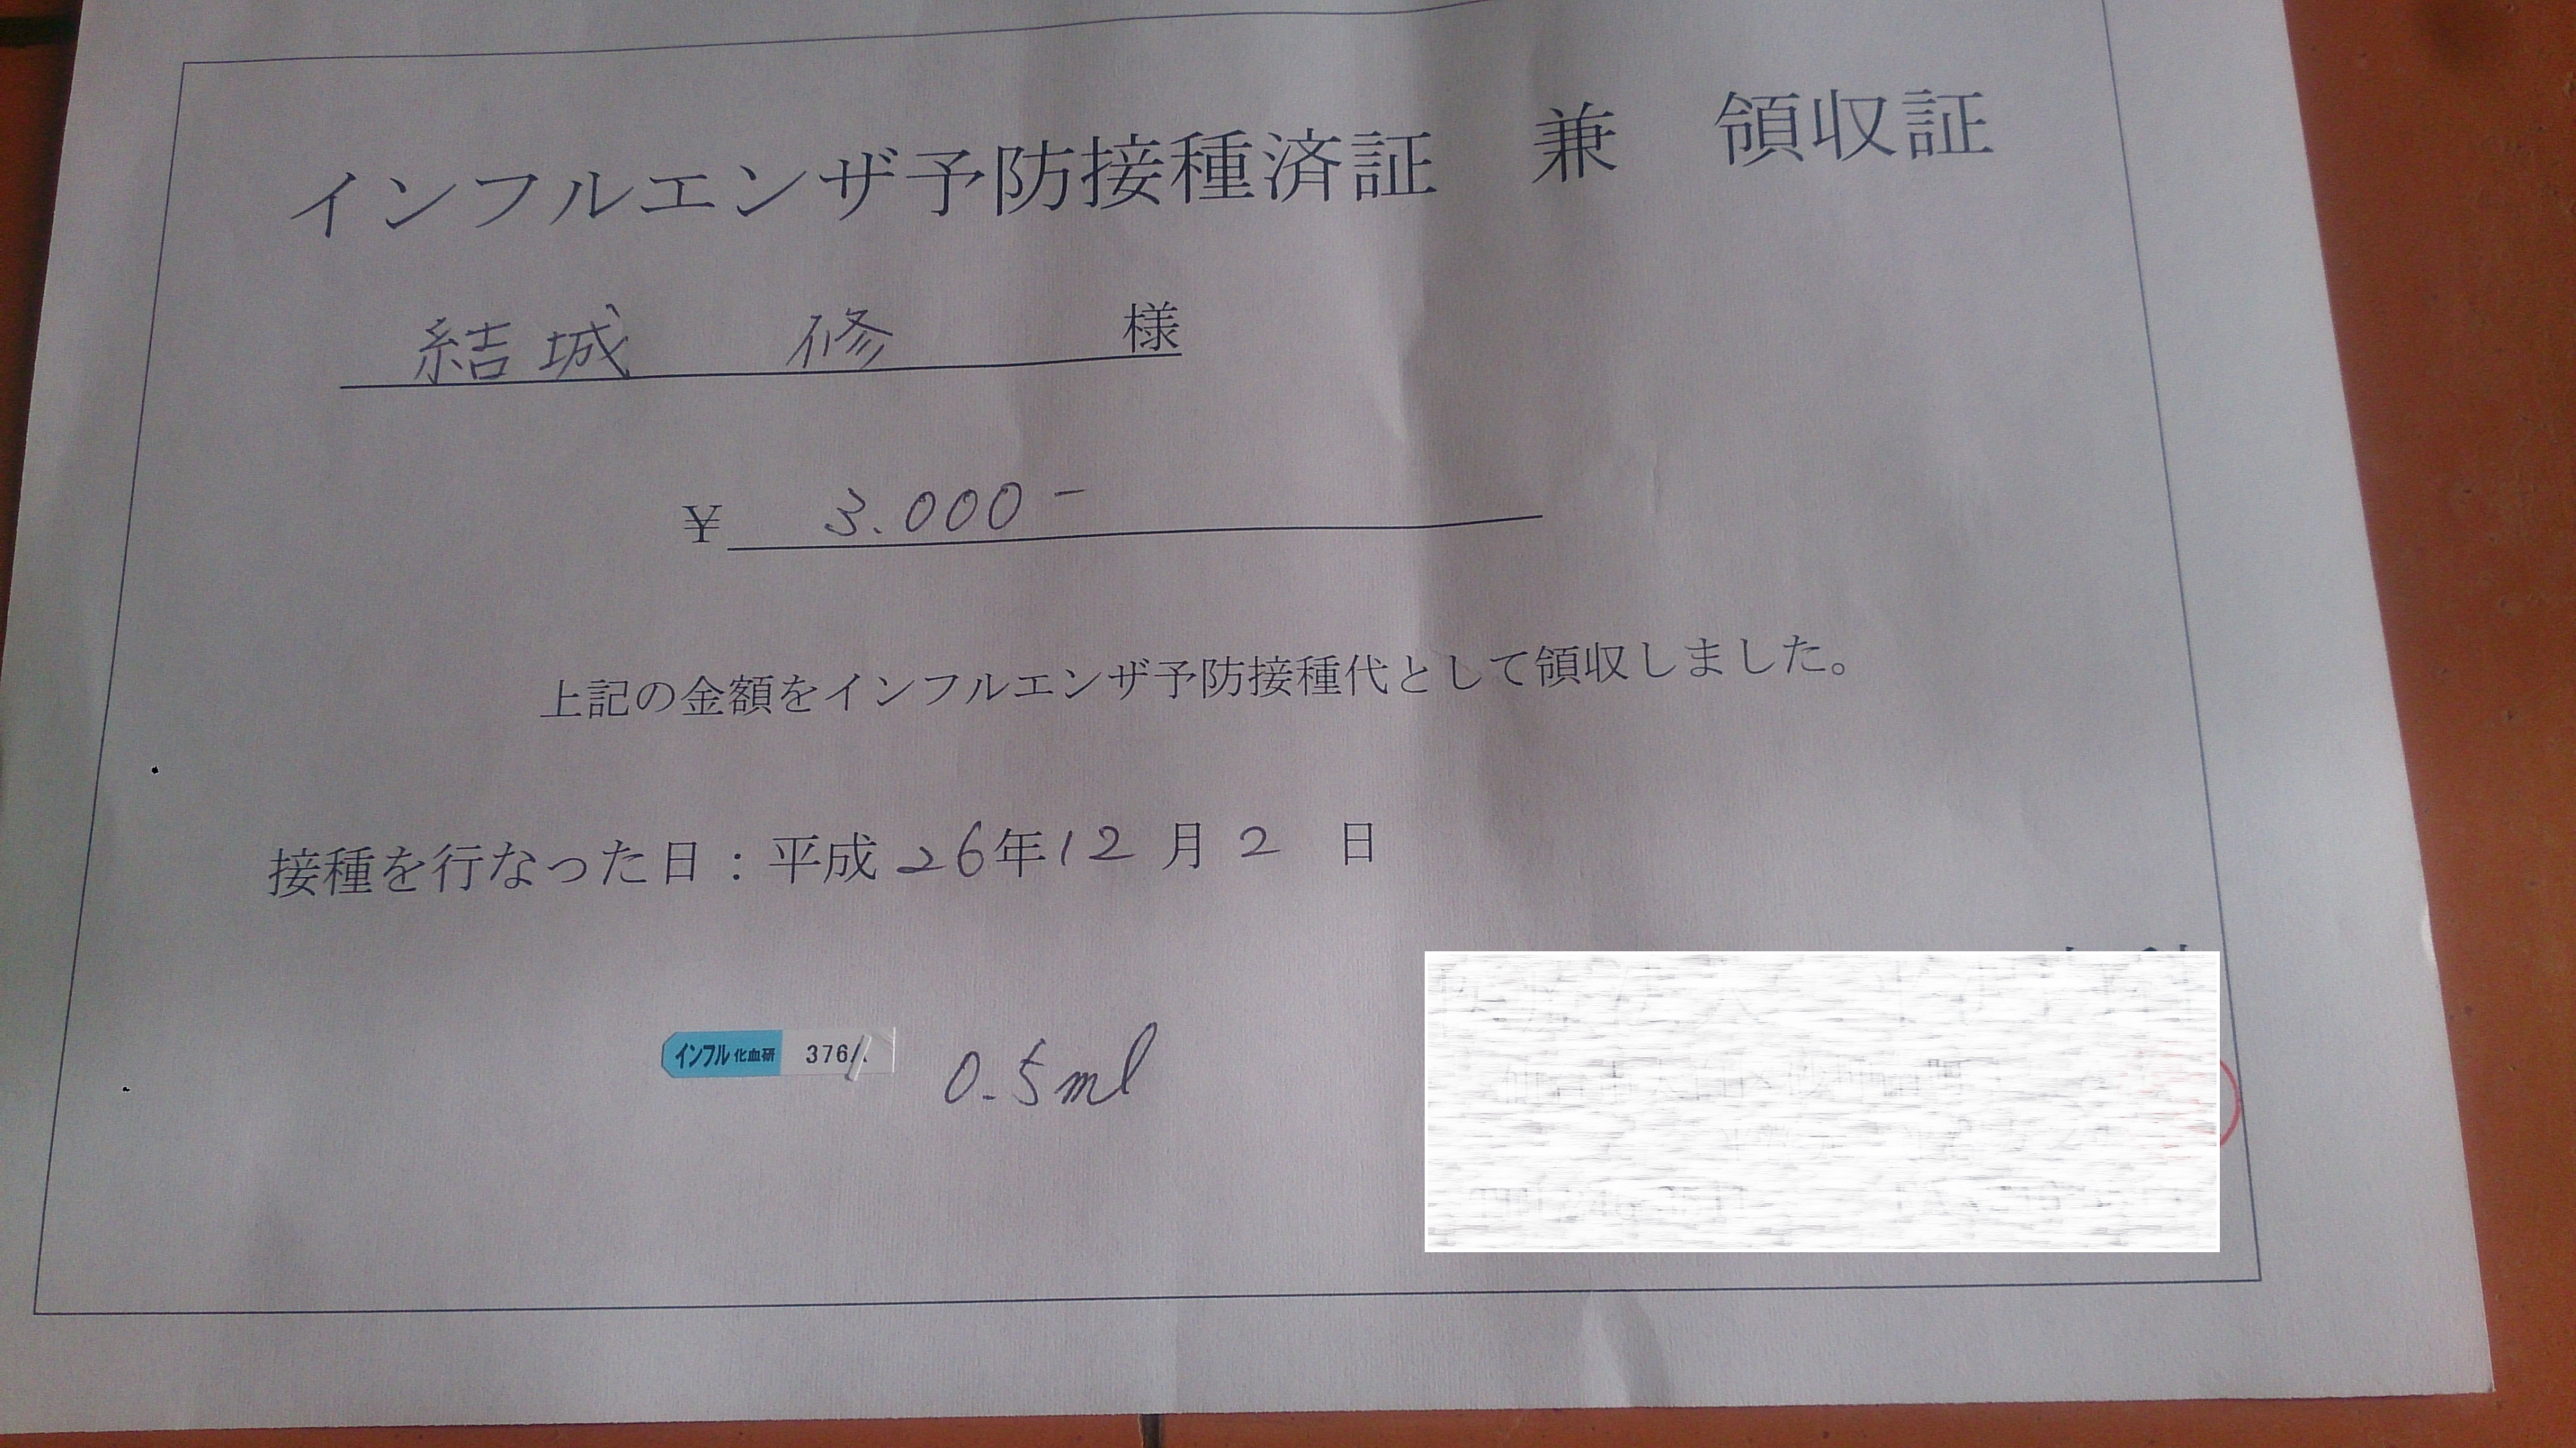 インフルエンザ予防接種済証　兼　領収証
結城　修　様
¥ 3.000-
上記の金額をインフルエンザ予防接種代として領収しました。
接種を行なった日：平成26年12月2日
インフル 化血研 376 0.5ml